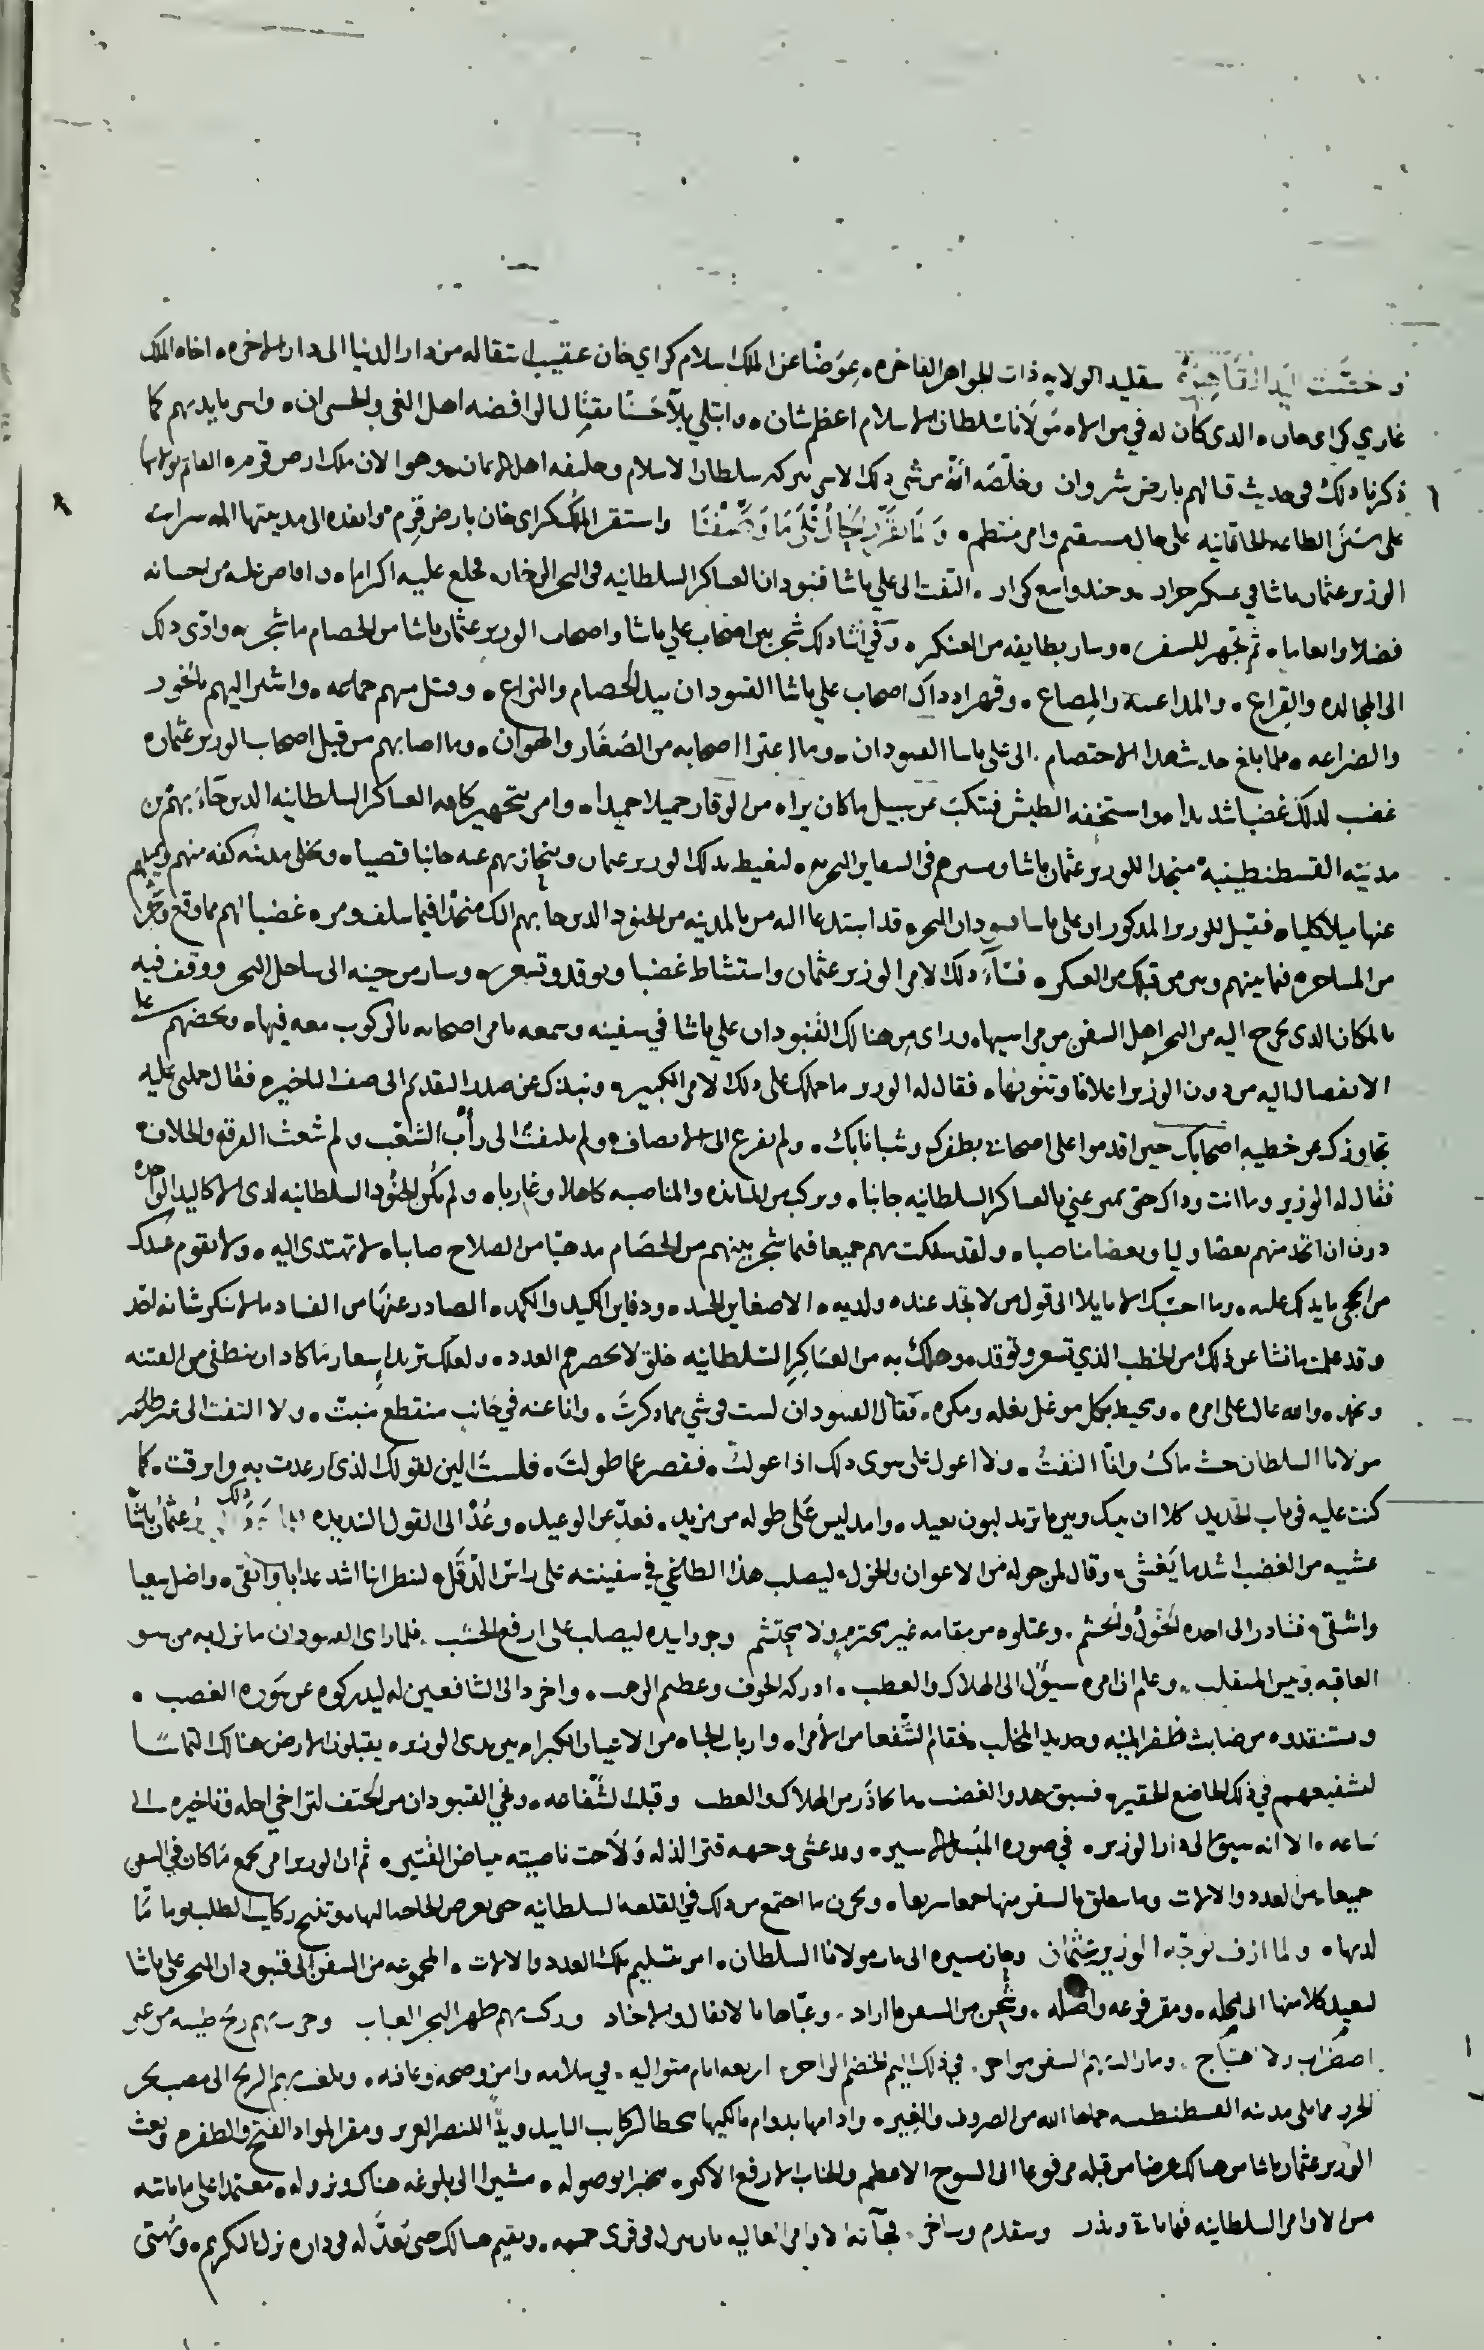 بتقليد الولايه ذات الجواهر الفاخره، عوضًا عن الملك اسلام كراي خان عقيب انتقاله من دار الدنيا الى دار الاخره، اخاه الملك
غازي كراي خان، الذي كان له في مولانا سلطان الاسلام اعظم شان، وابتلي بلآ حسنًا لقتال الرافضه اهل الغي والخسران، واسر بايديهم كما
ذكرنا ذلك في حديث قتالهم بارض شروان وخلّصه الله من ذلك الاسر ببركه سلطان الاسلام وخليفه اهل الايمان، وهو الان ملك ارض قرم
على سنن الطاعه الخاقانيه على حال مستقيم وامر منتظم، واستقر الملك كراي خان بارض قرم
الوزير عثمان باشا في عسكر جرار، وجند واسع، التفت الى علي باشا قبودان العساكر السلطانيه في البحر الزخار، فخلع عليه اكراما، وافاض عليه من احسانه
فضلا وانعاما، ثم تجهز للسفر، وسار بطايفه من العسكر، وفي اثنا ذلك شجر بين اصحاب علي باشا واصحاب الوزير عثمان باشا من الخصام ما شجر، وادّى ذلك
الى المجالده والقراع، والمداعسة والمصاع، وقهر اذ ذاك اصحاب علي باشا القبودان بيد الخصام والنزاع، وقتل منهم جماعه، واشير اليهم بالخور
والضراعه، فلما بلغ حديث هذا الاختصام، الى علي باشا القبودان، وما اعترا اصحابه من الصّغار والهوان، وما اصابهم من قبل اصحاب الوزير عثمان،
غضب لذلك غضبا شديدا، واستخفه الطيش فتنكب عن سبيل ما كان يراه من الوقار جميلا حميدا، وامر بتجهيز كافه العساكر السلطانيه الذين جآء بهم من
مدينة القسطنطينية منجدا للوزير عثمان باشا ومسيرهم في السفاين البحريه، ليغيظ بذلك الوزير عثمان وينحاز بهم عنه جانبا قصيا، ويخلي مدينه كفه منهم
عنها ميلا كليا، فقيل للوزير المذكور ان علي باشا قبودان البحر، قد استدعا اليه من بالمدينه من الجنود الذين جا بهم اليك منجدًا فيما سلف ومر، غضبا لهم مما وقع
من المشاجره فيما بينهم وبين من قبلك من العسكر، فسآء ذلك الامر الوزير عثمان واستشاط غضبا وتوقد وتسعر، وسار من حينه الى ساحل البحر ووقف فيه
بالمكان الذي يخرج اليه من البحر اهل السفن من مراسيها، وراى من هنالك القبودان علي باشا في سفينه وسمعه يامر اصحابه بالركوب معه فيها، ويحضهم على
الانفصال اليه من دون الوزير اعلانا وتنويها، فقال له الوزير ما حملك على ذلك الامر الكبير، ونبذك عن صدر التقديم الى صف التاخير، فقال حملني عليه
تجاوزك عن خطيه اصحابك حين اقدموا على اصحابي بظفرك وشبا نابك، ولم تفزع الى الانصاف، ولم تلتفت الى رأب الشعب ولم شعث الفرقه والخلاف،
فقال له الوزير وما انت وذاك حتى تميز عني بالعساكر السلطانيه جانبا، وتركب من المنابذه والمناصبه كاهلا وغاربا، ولم تكن الجنود السلطانيه لدي الا كاليد الواحده
دون ان اتخذ منهم بعضا وليا وبعضا مناصبا، ولقد سلكت بهم جميعا فيما شجر بينهم من الخصام مذهبًا من الصلاح صايبا، لا تهتدي اليه، ولا يقوم عندك
من الحجى ما يدلك عليه، وما احسبك الا مايلا الى قول من لا تجد عنده ولديه، الا ضغاين الحسد، ودفاين الكيد والكمد، الصادر عنها من الفساد ما لا ينكر شانه احد
وقد علمت ما نشا عن ذلك من الخطب الذي تسعر وتوقد، وحولك به من العساكر السلطانيه خلق لا يحصرهم العدد، ولعلك تريد اسعار ما كاد ان ينطفي من الفتنه
ويخمد، والله غالب على امره، ومحيط بكل موغل بغله ومكره، فقال القبودان لست في شي مما ذكرت، وانا عنه في جانب منقطع منبت، ولا التفت الى غير
مولانا السلطان حيث ما كنت وانّا التفتُ، ولا اعول على سوى ذلك اذا عولت، فقصر عما طولت، فلست الين لقولك الذي ارعدت به وابرقت، كما
كنت عليه في باب التجديد كلا ان بينك وبين ما تريد لبون بعيد، وامد ليس على طوله من مزيد، فعدّ عن الوعيد، وعُدْ الى القول السديد،
غشيه من الغضب اشد ما يغشى، وقال لمن حوله من الاعوان والخول، ليصلب هذا الطاغي في سفينته على راس الدقل، لننظر اينا اشد عذابا وابقى، واضل سعيا
واشقى، فتبادر الى اخذه الخول والحشم، وعتلوه من مقامه غير محترم ولا محتشم وجروا بيده ليصلب على ارفع الخشب، فلما راى القبودان ما نزل به من سو
العاقبه وبيس المنقلب، وعلم ان امره سيؤل الى الهلاك والعطب، ادركه الخوف وعظيم الرهب، واخرد الى الشافعين له ليدركوه عن سَورة الغضب،
ويستنقذوه من ضابث ظفر المنيه وحديد المخلب، فقام الشّفعا من الأمرا، وارباب الجاه من الاعيان الكبرا، بين يدي الوزير، يقبلون الارض هنالك التماسًا
لتشفيعهم في ذلك الخاضع الحقير، فسبق هدو الغضب، ما كاد من الهلاك والعطب وقبلت الشّفاعه، ونجي القبودان من الحتف لتراخي اجله وتاخيره الى
ساعه، الا انه سيق الى دار الوزير، في صوره المبتئس الاسير، وقد غشى وجهه قتر الذله ولاحت ناصيته بياض القتير، ثم ان الوزير امر بجمع ما كان في السفن
جميعا، من العدد والالات وما يتعلق بالسفر منها جمعا سريعا، ويخزن ما اجتمع من ذلك في القلعه السلطانيه حتى تعرض الحاجه اليها، وتنيخ ركايب الطلب
لديها، ولما ازف توجّه الوزير عثمان وحان مسيره الى باب مولانا السلطان، امر بتسليم تلك العدد والالات، المجموعه من السفن الى قبودان البحر علي باشا
ليعيد كلا منها الى محله، ومقر فرعه واصله، وشحن من السفن ما اراد، وعبّاها بالاثقال والازواد وركب بهم ظهر البحر العباب وجرت بهم ريح طيبه من غير
اضطراب ولا هياج، وما زالت بهم السفن مواخر، في ذلك اليم الخضم الزاخر، اربعه ايام متواليه، في سلامه وامن وصحه وعافيه، وبلغت بهم الريح الى مصب بحر
الخزر مما يلي مدينه القسطنطينيه حماها الله من الصروف والغير، وادامها بدوام مالكيها محطا لركاب التاييد وبدًّا للنصر العزيز ومقرا لمواد الفتح والظفر، وبعث
الوزير عثمان باشا من هنالك عرضا من قبله مرفوعا الى السوح الاعظم والجناب الارفع الاكبر، مخبرا بوصوله، مشيرا الى بلوغه هناك ونزوله، معتمدا على ما ياتيه
من الاوامر السلطانيه فيما ياتي ويذر ويتقدم ويتاخر، فجآته الاوامر العاليه بان ينزل في قرى، ويقيم هنالك حتى يُعدّ له في داره نزل الكريم، ويهنى